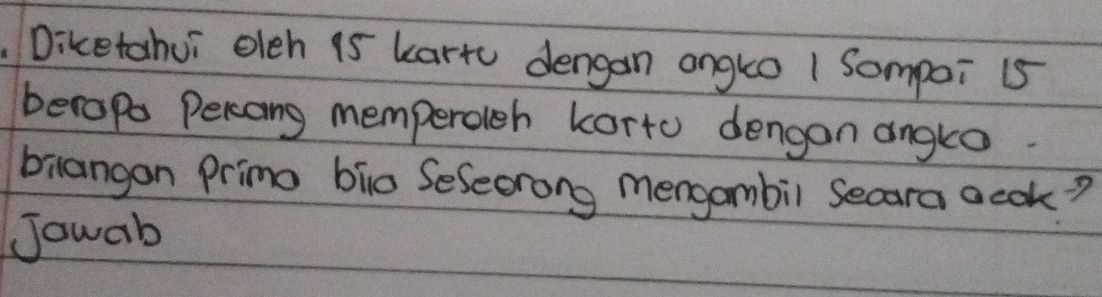 . Diketahui oleh 15 kartu dengan angka 1 Sampai 15
berapa Peluang memperoleh kartu dengan angka.
bilangan Prima bila Seseorang mengambil secara acak?
Jawab